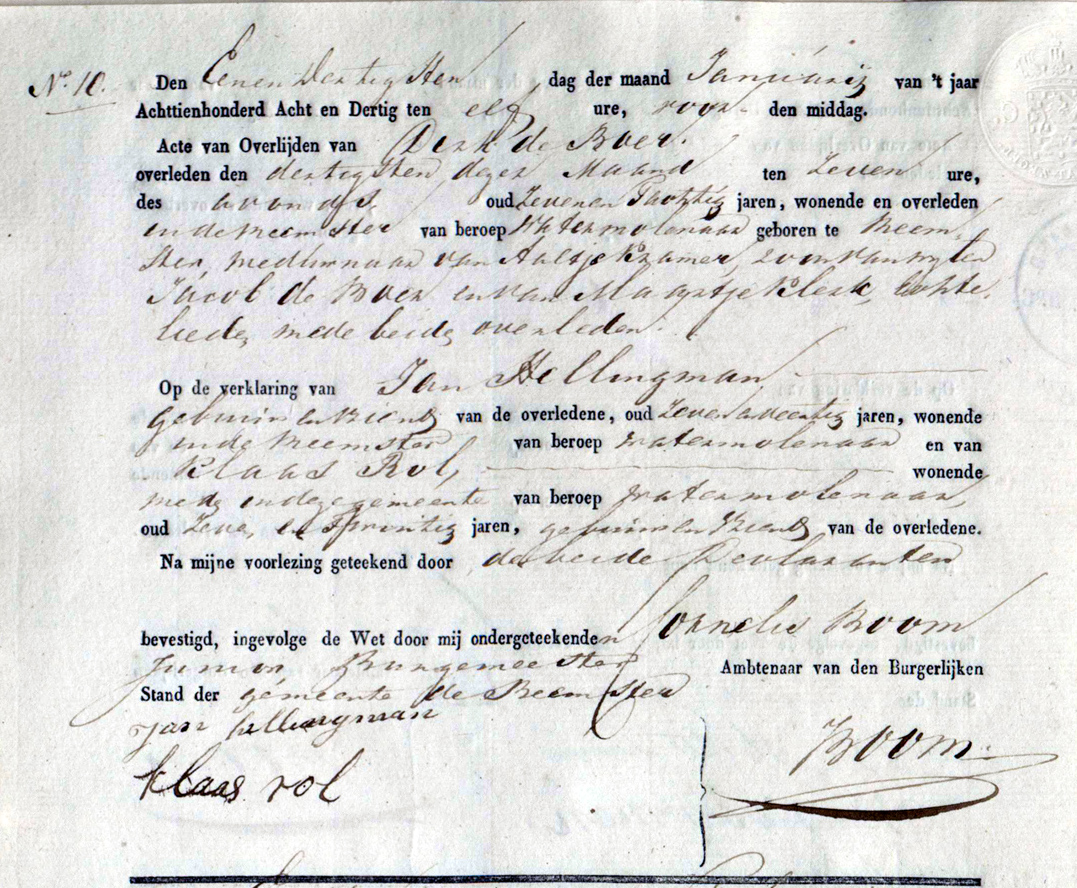 No. 10. Den Eenen Dertigsten dag der maand Januarij van 't jaar
Achttienhonderd Acht en Dertig ten elf ure, voor den middag.
Acte van Overlijden van Dirk de Boer.
overleden den dertigsten dezer Maand ten Zeven ure,
des avonds oud Zevenen Tachtig jaren, wonende en overleden
in de Beemster van beroep Watermolenaar geboren te Beem-
ster, weduwnaar van Aaltje Kramer, zoon van wijlen
Jacob de Boer en van Maartje Klerk, Echte-
lieden, mede beide overleden.
Op de verklaring van Jan Hellingman,
gebuur en vriend van de overledene, oud Zevenenveertig jaren, wonende
in de Beemster van beroep watermolenaar en van
Klaas Rol, wonende
mede in deze gemeente van beroep watermolenaar,
oud Zeven en Twintig jaren, gebuur en vriend van de overledene.
Na mijne voorlezing geteekend door de beide Declaranten
bevestigd, ingevolge de Wet door mij ondergeteekenden Cornelis Boom
Junior, Burgemeester Ambtenaar van den Burgerlijken
Stand der gemeente de Beemster
Jan hellingman
Boom
klaas rol